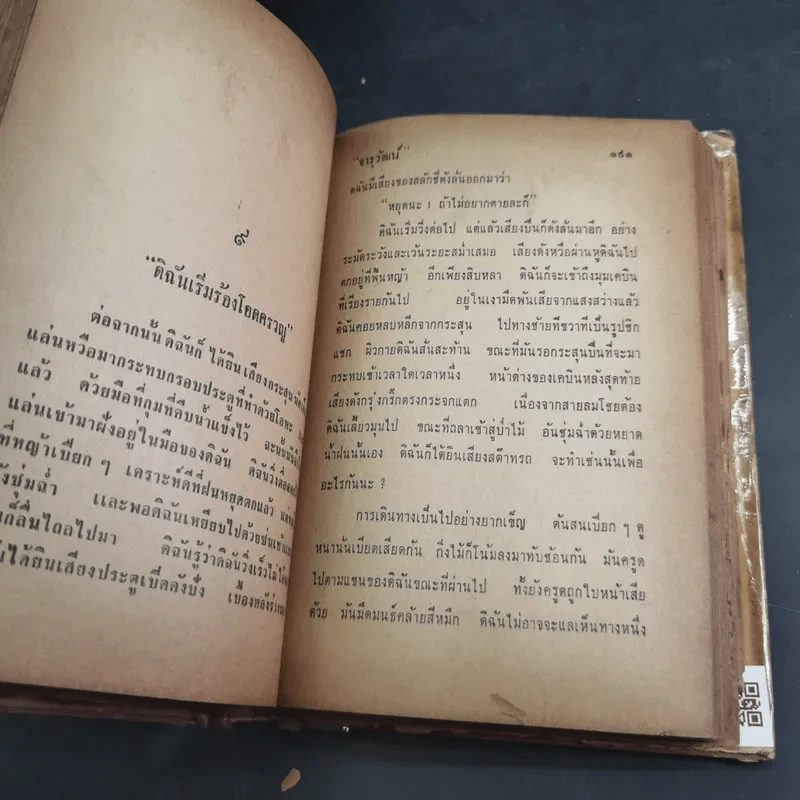 ๙
"ดิฉันเริ่มร้องโอดครวญ"
ต่อจากนั้น ดิฉันก็ ได้ยิน เสียงกระสุน
แล่นหวือมากระทบกรอบประตูที่ทำด้วยโลหะ
แล้ว ด้วยมือที่กุมที่ดีบน้ำแข็งไว้
แล่นเข้ามาฝังอยู่ในมือของดิฉัน ดิฉันวิ่ง
ที่หญ้าเปียก ๆ เคราะห์ดีที่ฝนหยุดตกแล้ว
ชุ่มฉ่ำ และพอดิฉันเหยียบไปด้วย
ลื่นไถลไปมา ดิฉันรู้ว่าดิฉันวิ่งเร็วไม่ได้
ได้ยินเสียงประตูเปิดดังปัง เบื้องหลัง
"จารุวัฒน์" ๑๕๑
ดิฉันมีเสียงของสลักซี่ดังลั่นออกมาว่า
"หยุดนะ ! ถ้าไม่อยากตายละก็"
ดิฉันเริ่มวิ่งต่อไป แต่แล้วเสียงปืนก็ดังลั่นมาอีก อย่าง
ระมัดระวังและเว้นระยะสม่ำเสมอ เสียงดังหวือผ่านหูดิฉันไป
ตกอยู่ที่พื้นหญ้า อีกเพียงสิบหลา ดิฉันก็จะเข้าถึงมุมเคบิน
ที่เรียงรายกันไป อยู่ในเงามืดพ้นเสียจากแสงสว่างแล้ว
ดิฉันคอยหลบหลีกจากกระสุน ไปทางซ้ายทีขวาทีเป็นรูปซิก
แซก ผิวกายดิฉันสั่นสะท้าน ขณะที่มันรอกระสุนปืนที่จะมา
กระทบเข้าเวลาใดเวลาหนึ่ง หน้าต่างของเคบินหลังสุดท้าย
เสียงดังกรุ๋งกริ๊กตรงกระจกแตก เนื่องจากสายลมโชยต้อง
ดิฉันเลี้ยวมุมไป ขณะที่ถลาเข้าสู่ป่าไม้ อันชุ่มฉ่ำด้วยหยาด
น้ำฝนนั้นเอง ดิฉันก็ได้ยินเสียงสต๊าทรถ จะทำเช่นนั้นเพื่อ
อะไรกันนะ ?
การเดินทางเป็นไปอย่างยากเข็ญ ต้นสนเปียก ๆ ดู
หนาแน่นเบียดเสียดกัน กิ่งไม้ก็โน้มลงมาทับซ้อนกัน มันครูด
ไปตามแขนของดิฉันขณะที่ผ่านไป ทั้งยังครูดถูกใบหน้าเสีย
ด้วย มันมืดมนธ์คล้ายสีหมึก ดิฉันไม่อาจจะแลเห็นทางหนึ่ง